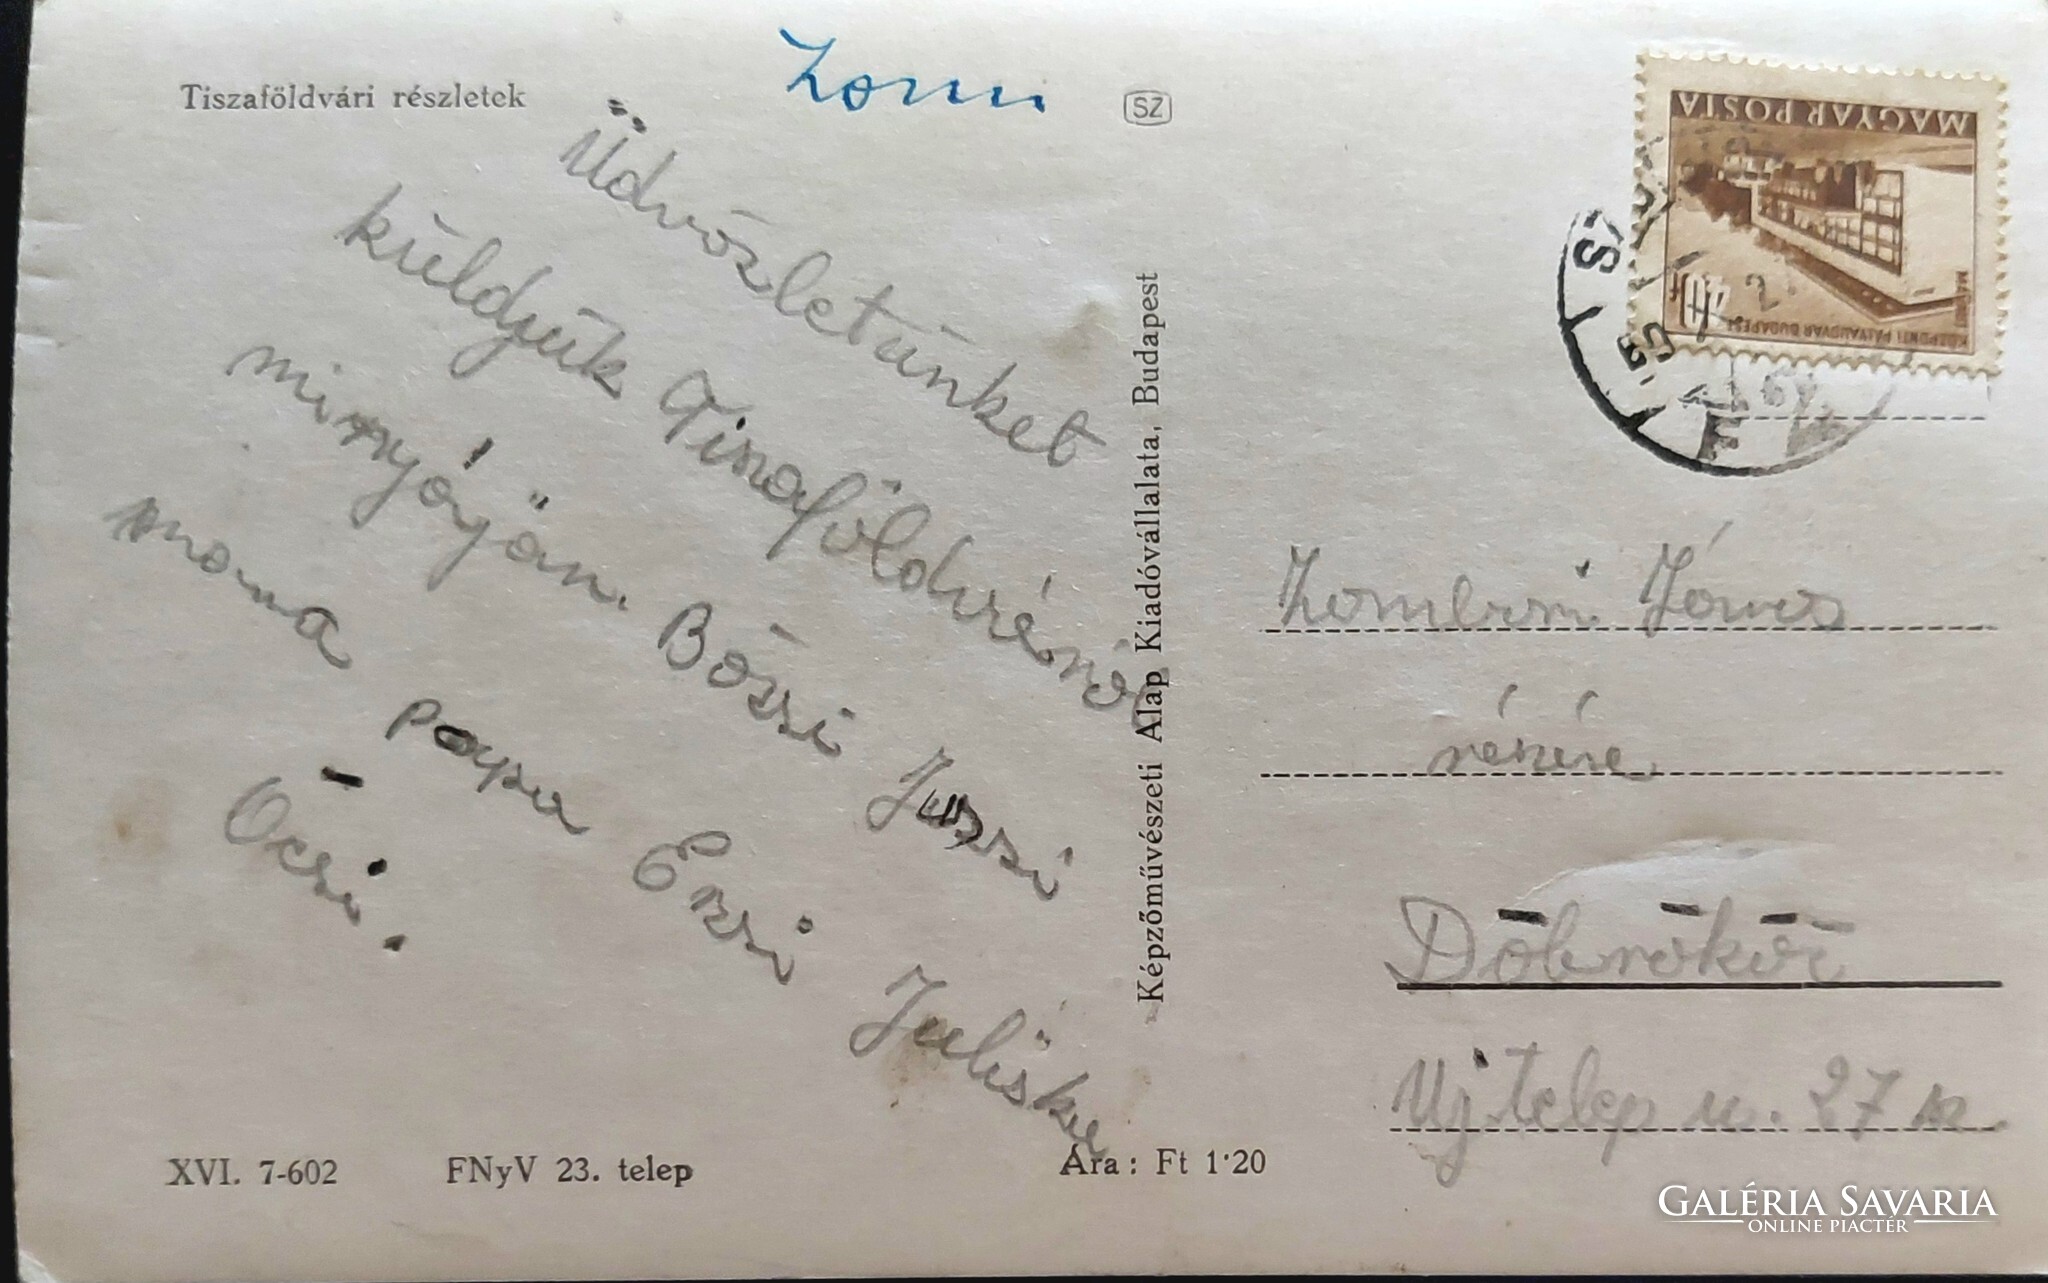 Tiszaföldvári részletek
SZ
Üdvözletünket
küldjük Tiszaföldvé
minyóján. Bözsi Jussi
mama papa Erzsi Juliska
Öcsi.
XVI. 7-602 FNyV 23. telep
Ára: Ft 1·20
Képzőművészeti Alap Kiadóvállalata, Budapest
MAGYAR POSTA
KÖZPONTI PÁLYAUDVAR BUDAPEST
Zombori János
részére
Döbrököz
Ujtelep u. 27 sz.
GALÉRIA SAVARIA
ONLINE PIACTÉR